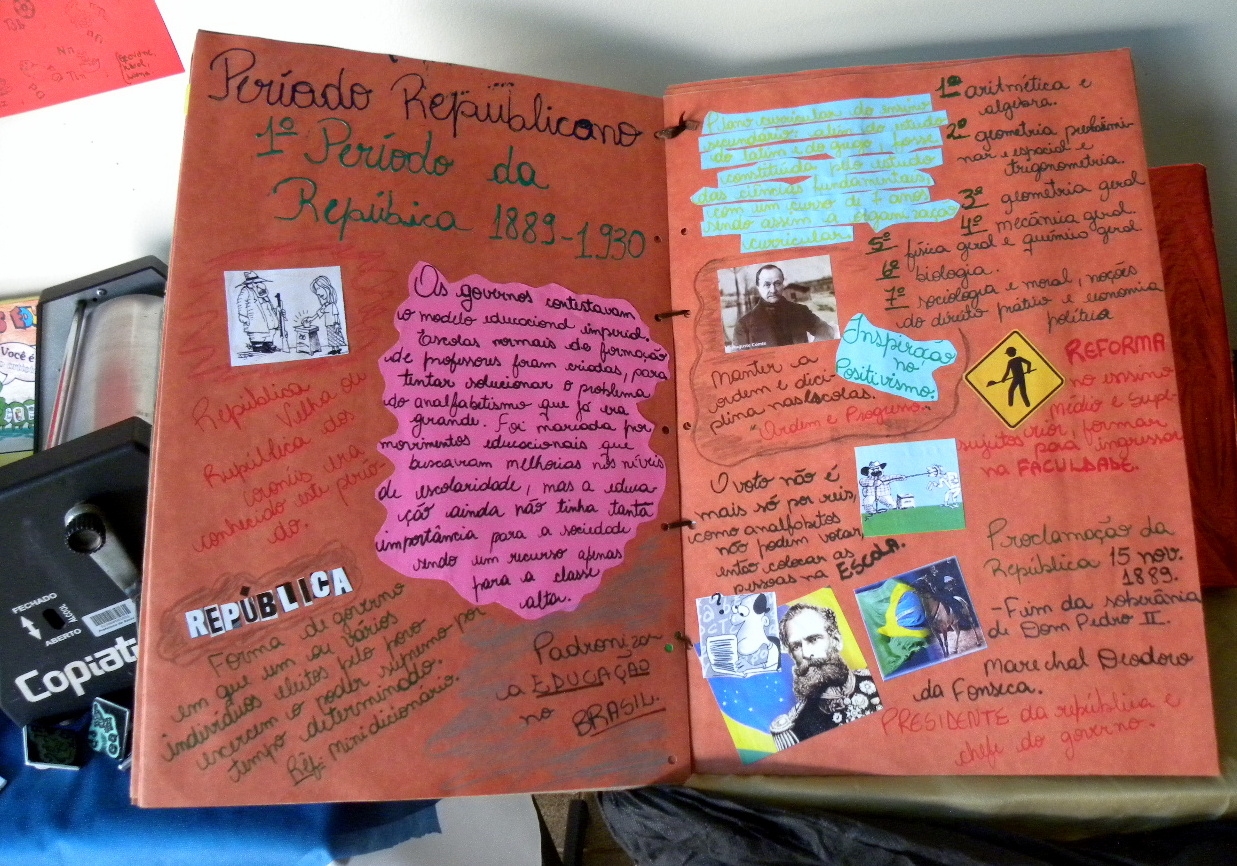 Período Republicano
1º Período da
Repúbica 1889-1930
Os governos contestavam
o modelo educacional imperial.
Escolas normais de formação
de professores foram criadas, para
tentar solucionar o problema
do analfabetismo que já era
grande. Foi marcada por
movimentos educacionais que
buscavam melhorias nos níveis
de escolaridade, mas a educa
ção ainda não tinha tanta
importância para a sociedade
sendo um recurso apenas
para a classe
alta.
República
Velha ou
República dos
coronéis era
conhecido este perío-
do.
REPÚBLICA
Forma de governo
em que um ou vários
indivíduos eleitos pelo povo
exercem o poder supremo por
tempo determinado.
Ref: Minidicionário.
Padroniza
a EDUCAÇÃO
no BRASIL.
Plano curricular do ensino
secundário: além do estudo
do latim e do grego, fosse
constituída pelo estudo
das ciências fundamentais,
com um curso de 7 anos
sendo assim a organização
curricular
1º aritmética e
algebra.
2º geometria
nar espacial e
trigonometria.
3º geometria geral
4º mecânica geral.
5º física geral e química geral
6º biologia.
7º sociologia e moral, noções
do direito prático e economia
política
Inspiração
no
Positivismo.
Manter a
ordem e dici-
plina nas escolas.
"Ordem e Progresso."
REFORMA
no ensino
Médio e
para ingressar
na FACULDADE.
O voto não é
mais só por reis,
como analfabetos
não podem votar,
então colocar as
pessoas na ESCOLA.
Proclamação da
República 15 nov.
1889.
-Fim da soberânia
di Dom Pedro II.
Marechal Deodoro
da Fonseca.
PRESIDENTE da república e
chefe do governo.
Você é
FECHADO
ÁLCOOL
ABERTO
Copiat